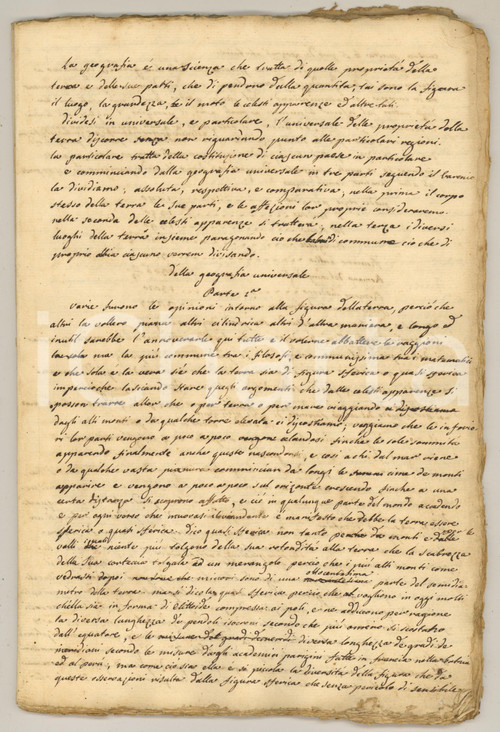 La geografia è una scienza che tratta di quelle proprietà della
terra e delle sue parti, che dipendono dalla quantità, tai sono la figura
il luogo, la grandezza, le il moto le celesti apparenze ed altre tali.
dividesi in universale, e particolare, l'universale delle proprietà della
terra discorre senza non riguardando punto alle particolari regioni.
la particolare tratta della costituzione di ciascun paese in particolare
e cominciando dalla geografia universale in tre parti seguendo il Varenio
la dividiamo, assoluta, respettiva, e comparativa, nella prima il corpo
stesso della terra le sue parti, e le affezioni lor proprie consideraremo
nella seconda delle celesti apparenze si tratterà, nella terza i diversi
luoghi della terra insieme paragonando ciò che di commune ciò che di
proprio abbia ciascuno verrem divisando.
della geografia universale
Parte 1.a
Varie furono le opinioni intorno alla figura della terra, perciò che
altri la vollero piana altri cilindrica altri d'altra maniera, e longo ed
inutil sarebbe l'annoverarle qui tutte e il volerne abbattere le raggioni
la sola ma la più commune tra i filosofi, e communissima tra i matematici
e che sola è la vera si è che la terra sia di figura sferica o quasi sferica
imperciochè lasciando stare quegli argomenti che dalle celesti apparenze si
posson trarre, allor che o per terra o per mare viaggiando ci
dagli alti monti o da qualche torre elevata ci discostiamo; veggiamo che le inferio
ri lor parti vengono a poco a poco celandosi sinchè le sole sommità
apparendo finalmente anche queste nascondonsi, e così a chi dal mar viene
o da qualche vasta pianura comminciano da longi le cima de monti
apparire e vengono a poco a poco sul orizonte crescendo sinchè a una
certa distanza si scoprono affatto, e ciò in qualunque parte del mondo accadendo
e per ogni verso che è manifesto che debbe la terra essere
sferica o quasi sferica. dico quasi sferica non tanto perchè da monti e dalle
valli niente più tolgono della sua rotondità alla terra che la scabrezza
della sua corteccia tolgala ad un merangolo perciò che i più alti monti come
vedrassi dopoi sono di una parte del semidia
metro della terra. ma si dico quasi sferica perciò che vogliono in oggi molti
ch'ella sia in forma di elittoide compressa ai poli, e ne adducono per ragione
la diversa lunghezza de pendoli secondo che più s'scostano
dall'equatore, e le diversa longhezza de gradi de
meridiani secondo le misure degli academici parigini fatte in francia nella
ed al perù, ma come ciò sia ella è sì picola la diversità della figura che da
queste osservazioni risulta dalla figura sferica che senza pericolo di sensibile